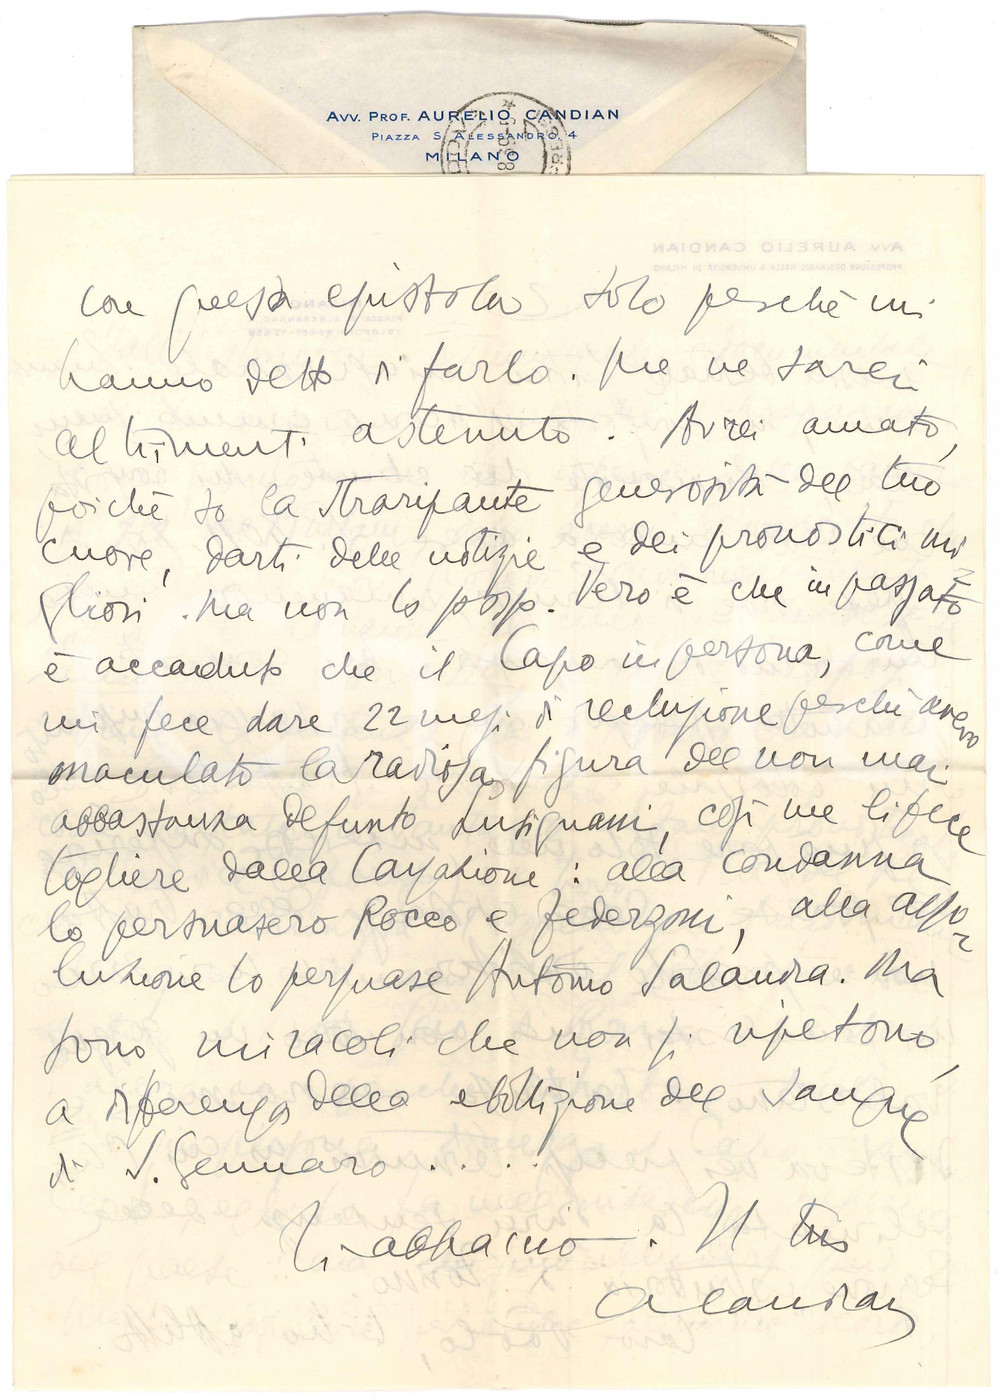 AVV. PROF. AURELIO CANDIAN
PIAZZA S. ALESSANDRO 4
MILANO
con questa epistola solo perchè mi
hanno detto di farlo. Me ne sarei
altrimenti astenuto. Avrei amato,
poichè so la straripante generosità del tuo
cuore, darti delle notizie e dei pronostici mi-
gliori. Ma non lo posso. Vero è che in passato
è accaduto che il Capo in persona, come
mi fece dare 22 mesi di reclusione perchè avevo
maculato la radiosa figura del non mai
abbastanza defunto Lusignani, così me li fece
togliere dalla Cassazione: alla condanna
lo persuasero Rocco e Federzoni, alla asso-
luzione lo persuase Antonio Salandra. Ma
sono miracoli che non si ripetono,
a differenza della ebollizione del sangue
di S. Gennaro . . . .
Ti abbraccio. Il tuo
A Candian